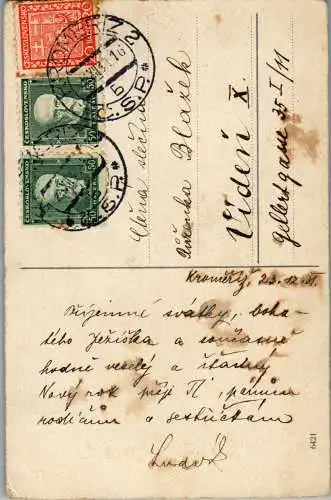 ČESKOSLOVENSKO
20
ČESKOSLOVENSKO
50
ČESKOSLOVENSKO
50
KROMĚŘÍŽ 2
Č.S.R.*
Ctěná slečna
Růženka Blažek
Vídeň X.
Gellertgasse 35-I/11
Kroměříž, 23.12.31.
Příjemné svátky, boha-
tého Ježíška a současně
hodně veselý a šťastný
Nový rok přeji Ti, panům
rodičům a sestřičkám
Luděk
6421